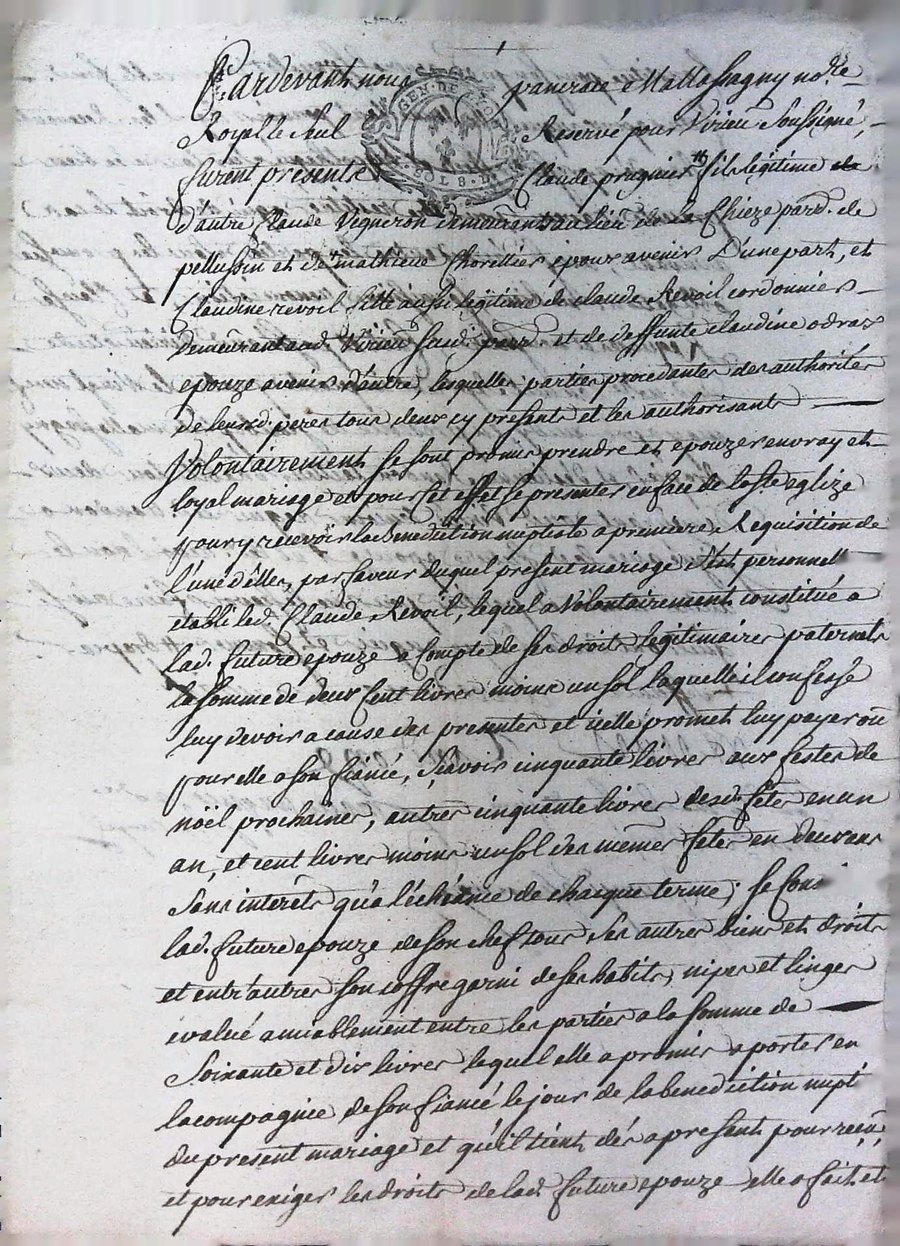 Pardevant nous pancrace Mallassagny no.re
Royal le seul Reservé pour Virieu soussigné,
furent présents Claude prugnier fils légitime
d'autre Claude Vigneron demeurants au lieu de la Chieze parr. de
pellussin et de mathieue Chorellier epoux avenir D'unepart, et
Claudine revoil fille aussi légitime de claude Revoil cordonnier
demeurant aud. Virieu susd. parr. et de deffunte claudine odraz
epouze avenir d'autre, lesquelles parties procedantes des authorités
de leursd. peres tous deux cy présents et les authorisants
Volontairement se sont promis prendre et epouzer en vray et
loyal mariage et pour cet effet se presenter en face de la ste eglize
pour y recevoir la Benediction nuptiale a premiere Requisition de
l'une d'elles, par faveur duquel present mariage s'est personnell
etabli led. Claude Revoil, lequel a Volontairement constitué a
lad. future epouze a compte de ses droits légitimaires paternels
la somme de deux cent livres moins un sol laquelle il confesse
luy devoir a cause des presentes et icelle promet luy payer ou
pour elle a son fiancé, sçavoir cinquante livres aux festes de
noël prochaines, autres cinquante livres desd. fêtes en un
an, et cent livres moins un sol des memes fêtes en deux ans
sans interêts qu'a l'échéance de chacque terme; se
lad. future epouze de son chef tous ses autres biens et droits
et entr'autres son coffre garni de ses habits, nipes et linges
evalué amiablement entre les parties a la somme de
soixante et dix livres lequel elle a promis aporter en
la compagnie de son fiancé le jour de la benediction nupt
du present mariage et qu'il tient dés apresent pour receu,
et pour exiger les droits de lad. future epouze elle a fait et